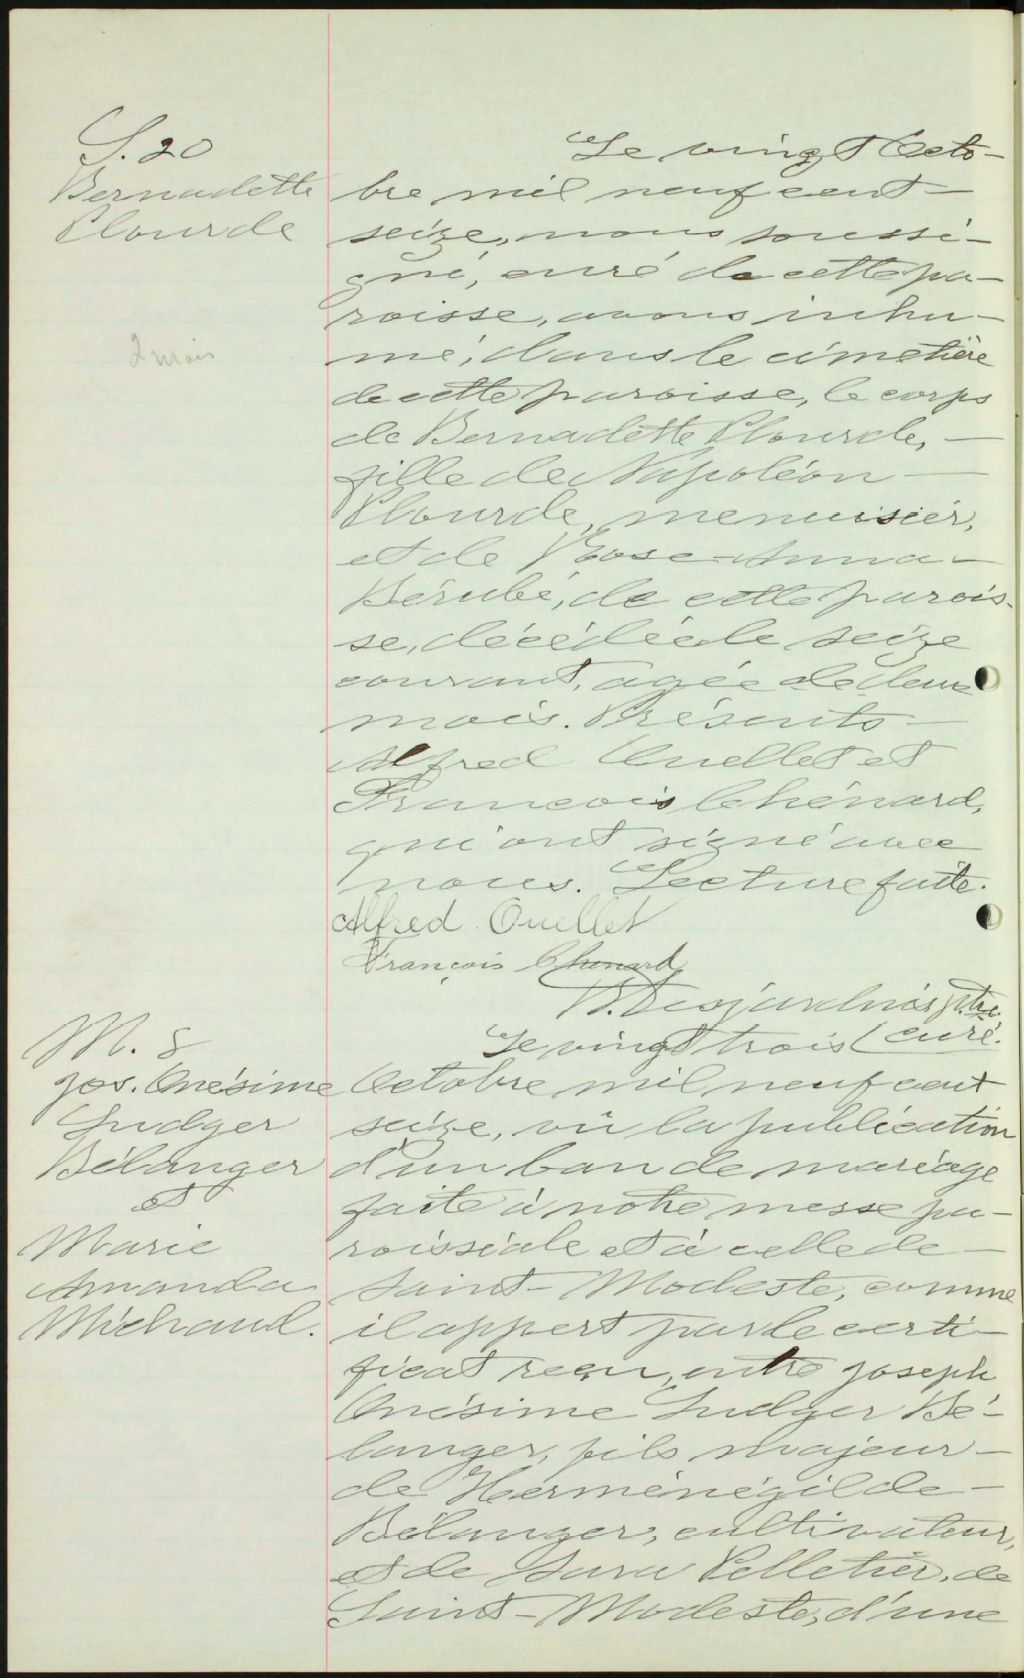 S. 20
Bernadette
Plourde
2 mois
Le vingt Octo-
bre mil neuf cent
seize, nous soussi-
gné, curé de cette pa-
roisse, avons inhu-
mé, dans le cimetière
de cette paroisse, le corps
de Bernadette Plourde,
fille de Napoléon
Plourde, menuisier,
et de Rose-Anna
Bérubé, de cette parois-
se, décédée le seize
courant, agée de deux
mois. Présents
Alfred Ouellet et
François Chénard,
qui ont signé avec
nous. Lecture faite.
Alfred Ouellet
François Chenard
Desjardins ptre
curé.
M. 8
Jos. Onésime
Ludger
Bélanger
et
Marie
Amanda
Michaud.
Le vingt trois
Octobre mil neuf cent
seize, vû la publication
d'un ban de mariage
faite à notre messe pa-
roissiale et à celle de
Saint-Modeste, comme
il appert par le certi-
ficat reçu, entre Joseph
Onésime Ludger Bé-
langer, fils majeur
de Herménégilde
Bélanger, cultivateur,
et de Sara Pelletier, de
Saint-Modeste, d'une